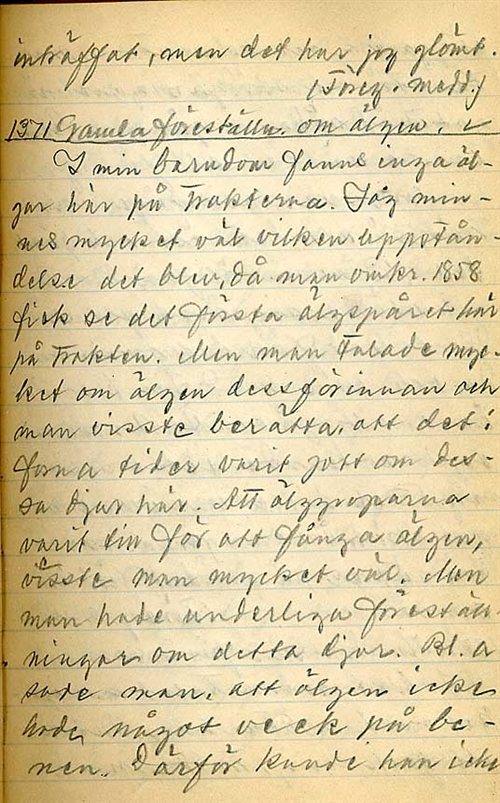 inträffat, men det har jag glömt.
(Föreg. medd.)
1371 Gamla föreställn. om älgen.
I min barndom fanns inga äl-
gar här på trakterna. Jag min-
nes mycket väl vilken uppstån-
delse det blev, då man omkr. 1858
fick se det första älgspåret här
på trakten. Men man talade myc-
ket om älgen dessförinnan och
man visste berätta, att det i
forna tider varit gott om des-
sa djur här. Att älggroparna
varit till för att fånga älgen,
visste man mycket väl. Men
man hade underliga föreställ
ningar om detta djur. Bl. a
sade man, att älgen icke
hade något veck på be-
nen. Därför kunde han icke